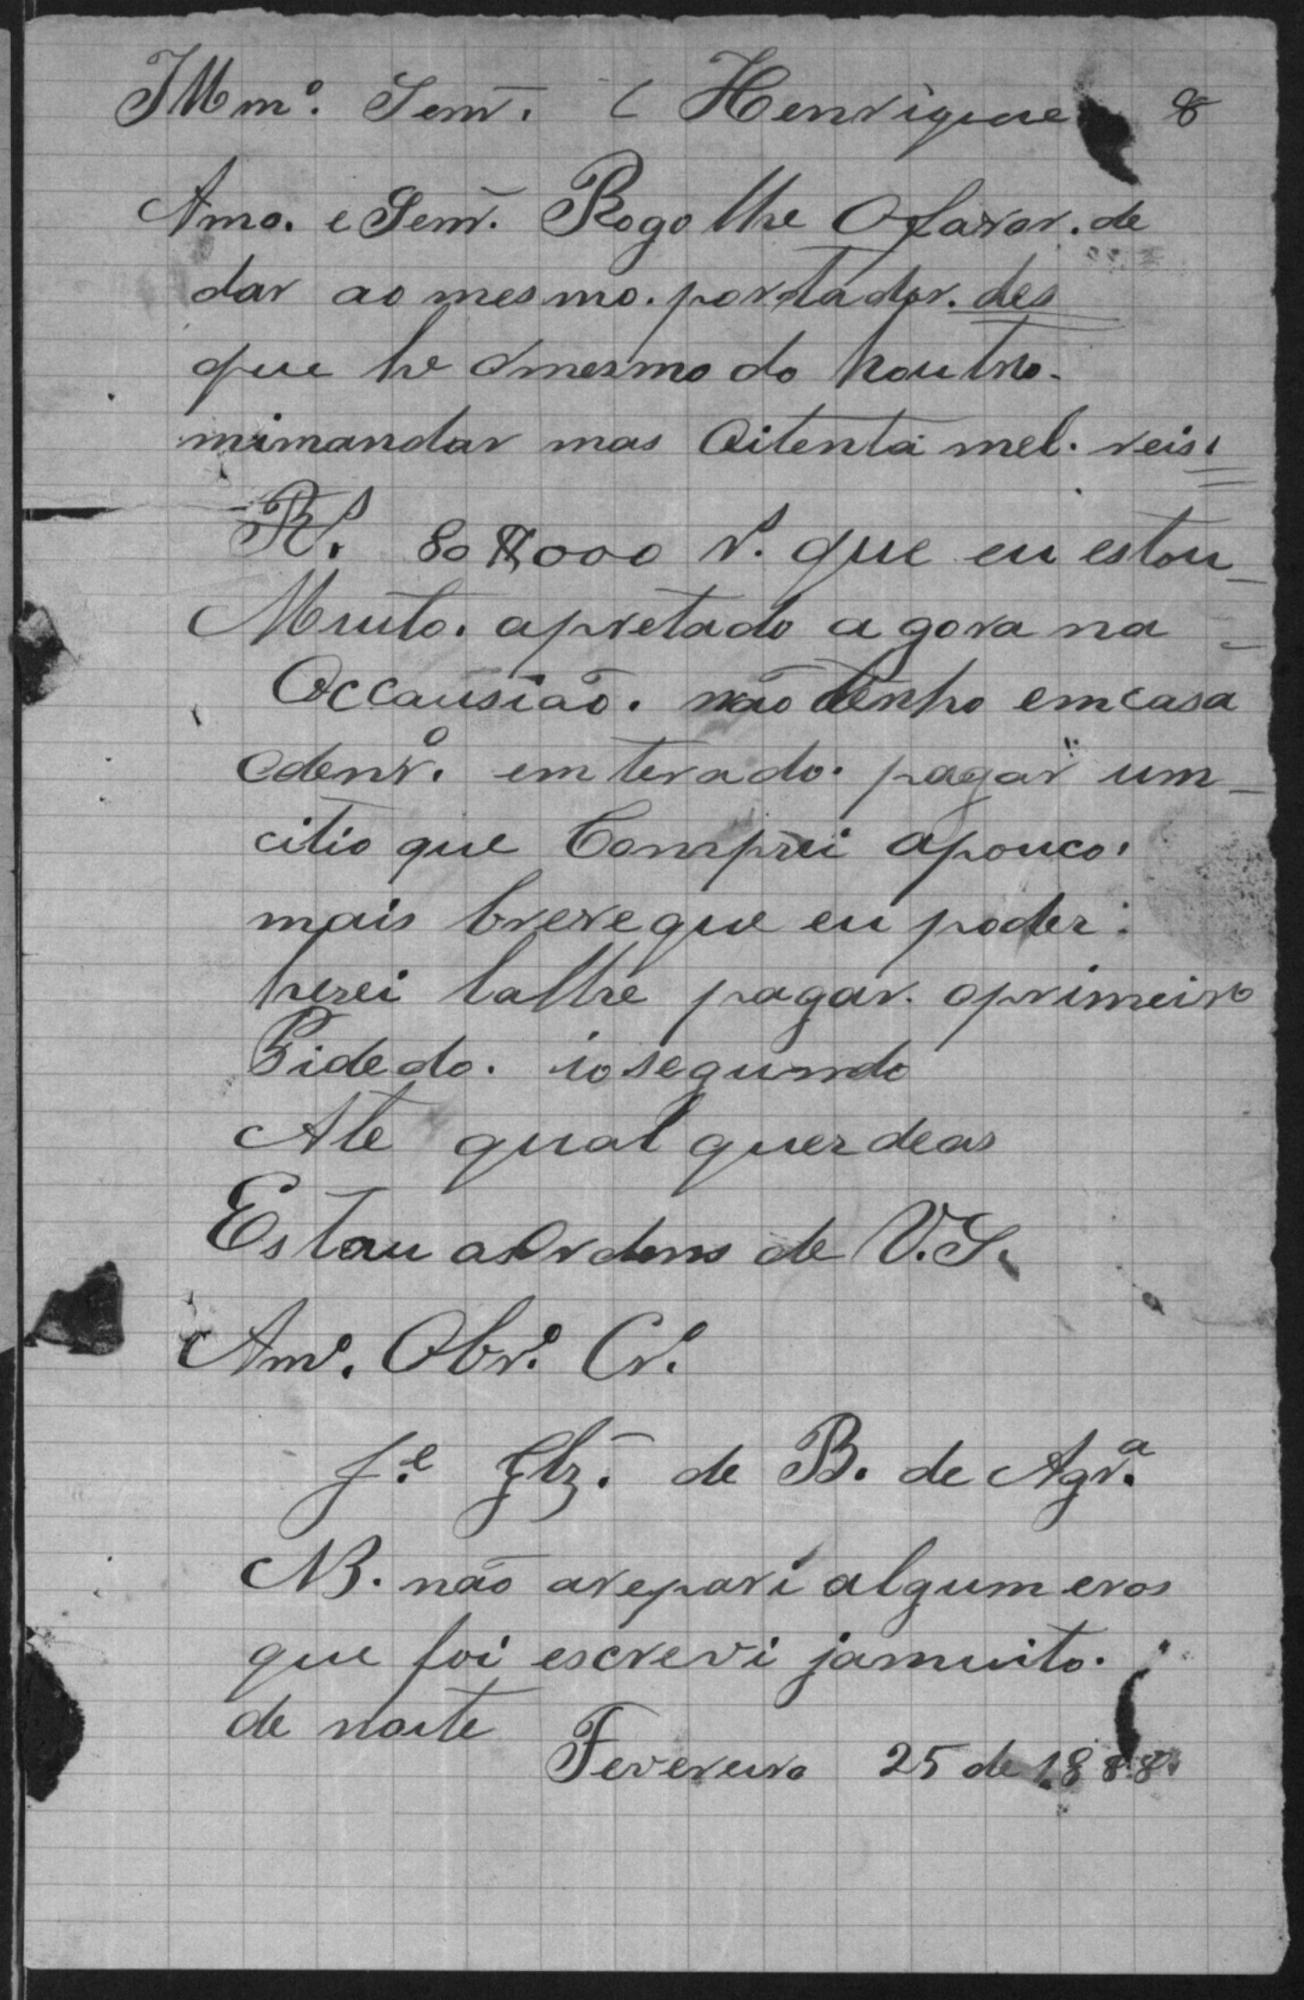 Illmº. Senr. Henrique 8
Amo. e Senr. Rogo lhe O favor. de
dar ao mesmo. portador. des
que he omesmo do houtro.
mimandar mas Oitenta mel. reis.
Rs. 80$000 rs. que eu estou
Muito. apretado agora na
Occausião. não tenho emcasa
odenrº. em terado. pagar um
citio que Comprei apouco.
mais breve que eu poder.
herei lalhe pagar. oprimeiro
Pidedo. iosegundo
Ate qual quer deas
Estou as Ordens de V. S.
Amº. Obrº. Crº.
J.e Glz. de B. de Agr.a
NB. não arepari algum eros
que foi escrevi jamuito.
de noite
Fevereiro 25 de 1888.